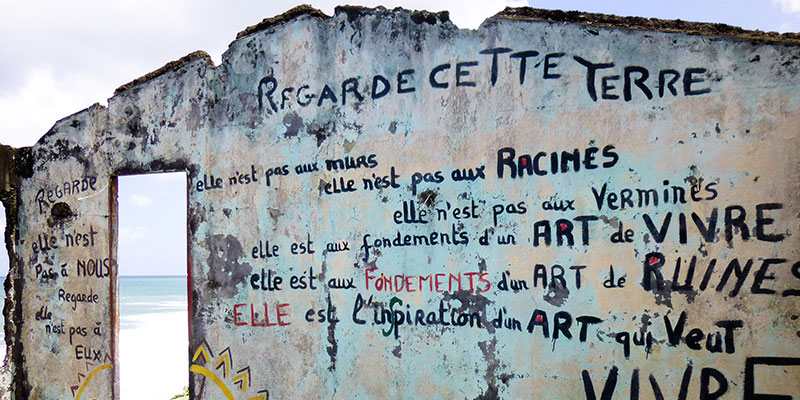 REGARDE CETTE TERRE
elle n'est pas aux MURS
elle n'est pas aux RACINES
elle n'est pas aux VERMINES
elle est aux fondements d'un ART de VIVRE
elle est aux FONDEMENTS d'un ART de RUINES
ELLE est l'inspiration d'un ART qui Veut
VIVRE
REGARDE
elle n'est
Pas à NOUS
Regarde
elle
n'est pas à
EUX